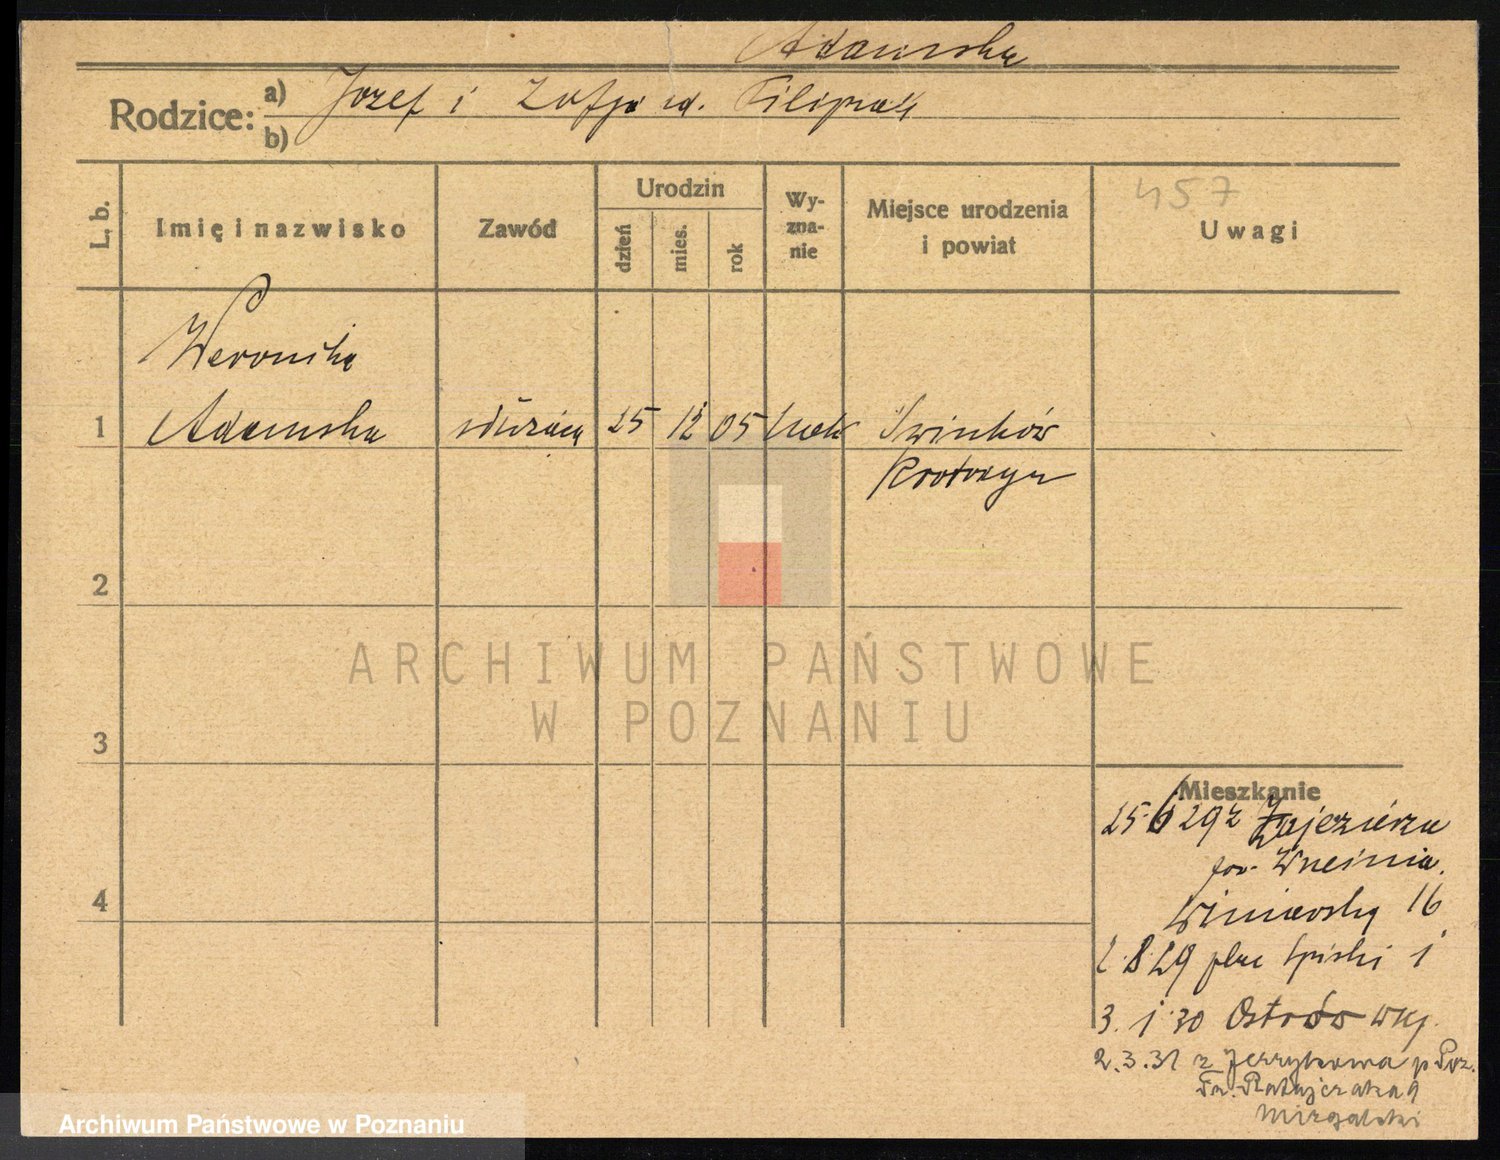 Adamska
Rodzice: a) Józef i Zofja ur. Filipiak
b)
457
L. b. Imię i nazwisko Zawód Urodzin dzień mies. rok Wy-zna-nie Miejsce urodzenia i powiat Uwagi
Weronika
1 Adamska służąca 25 12 05 kat Świnków
Krotoszyn
2
3
4
Mieszkanie
25 6 29 z Zajezierza
pow.
Winiarska 16
2.8.29 plac Spiski 1
3.1.30 Ostrów wlkp.
2.3.31 z Jerzykowa p Poz.
Fr. Ratajczaka 9
Mizgalski
ARCHIWUM PAŃSTWOWE
W POZNANIU
Archiwum Państwowe w Poznaniu